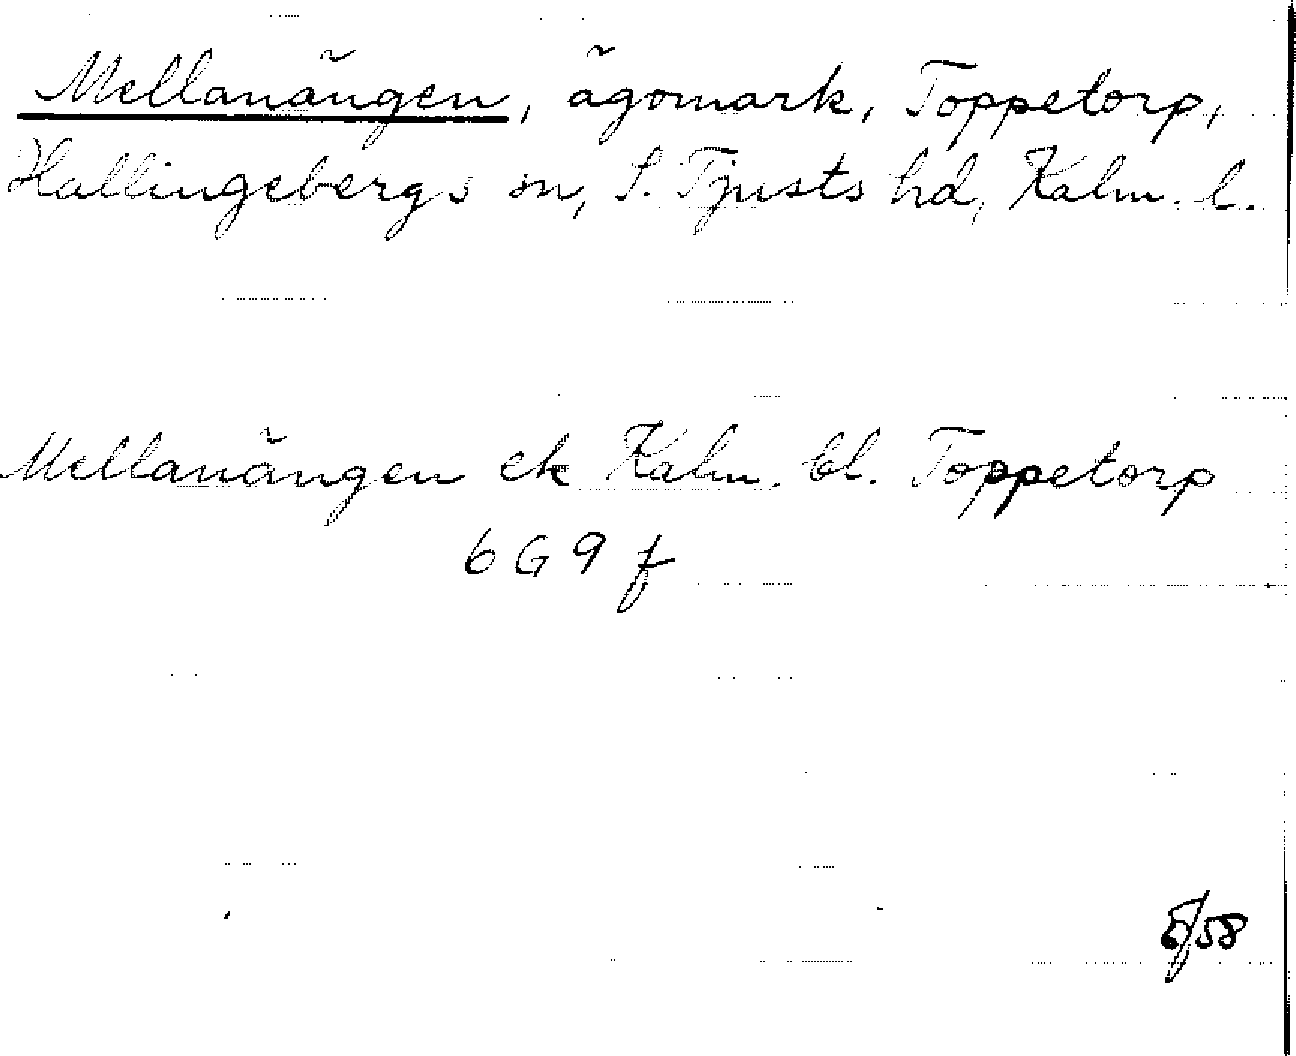 Mellanängen, ägomark, Toppetorp,
Hallingebergs sn, S. Tjusts hd, Kalm. l.
Mellanängen ek Kalm. bl. Toppetorp
6 G 9 f
/58